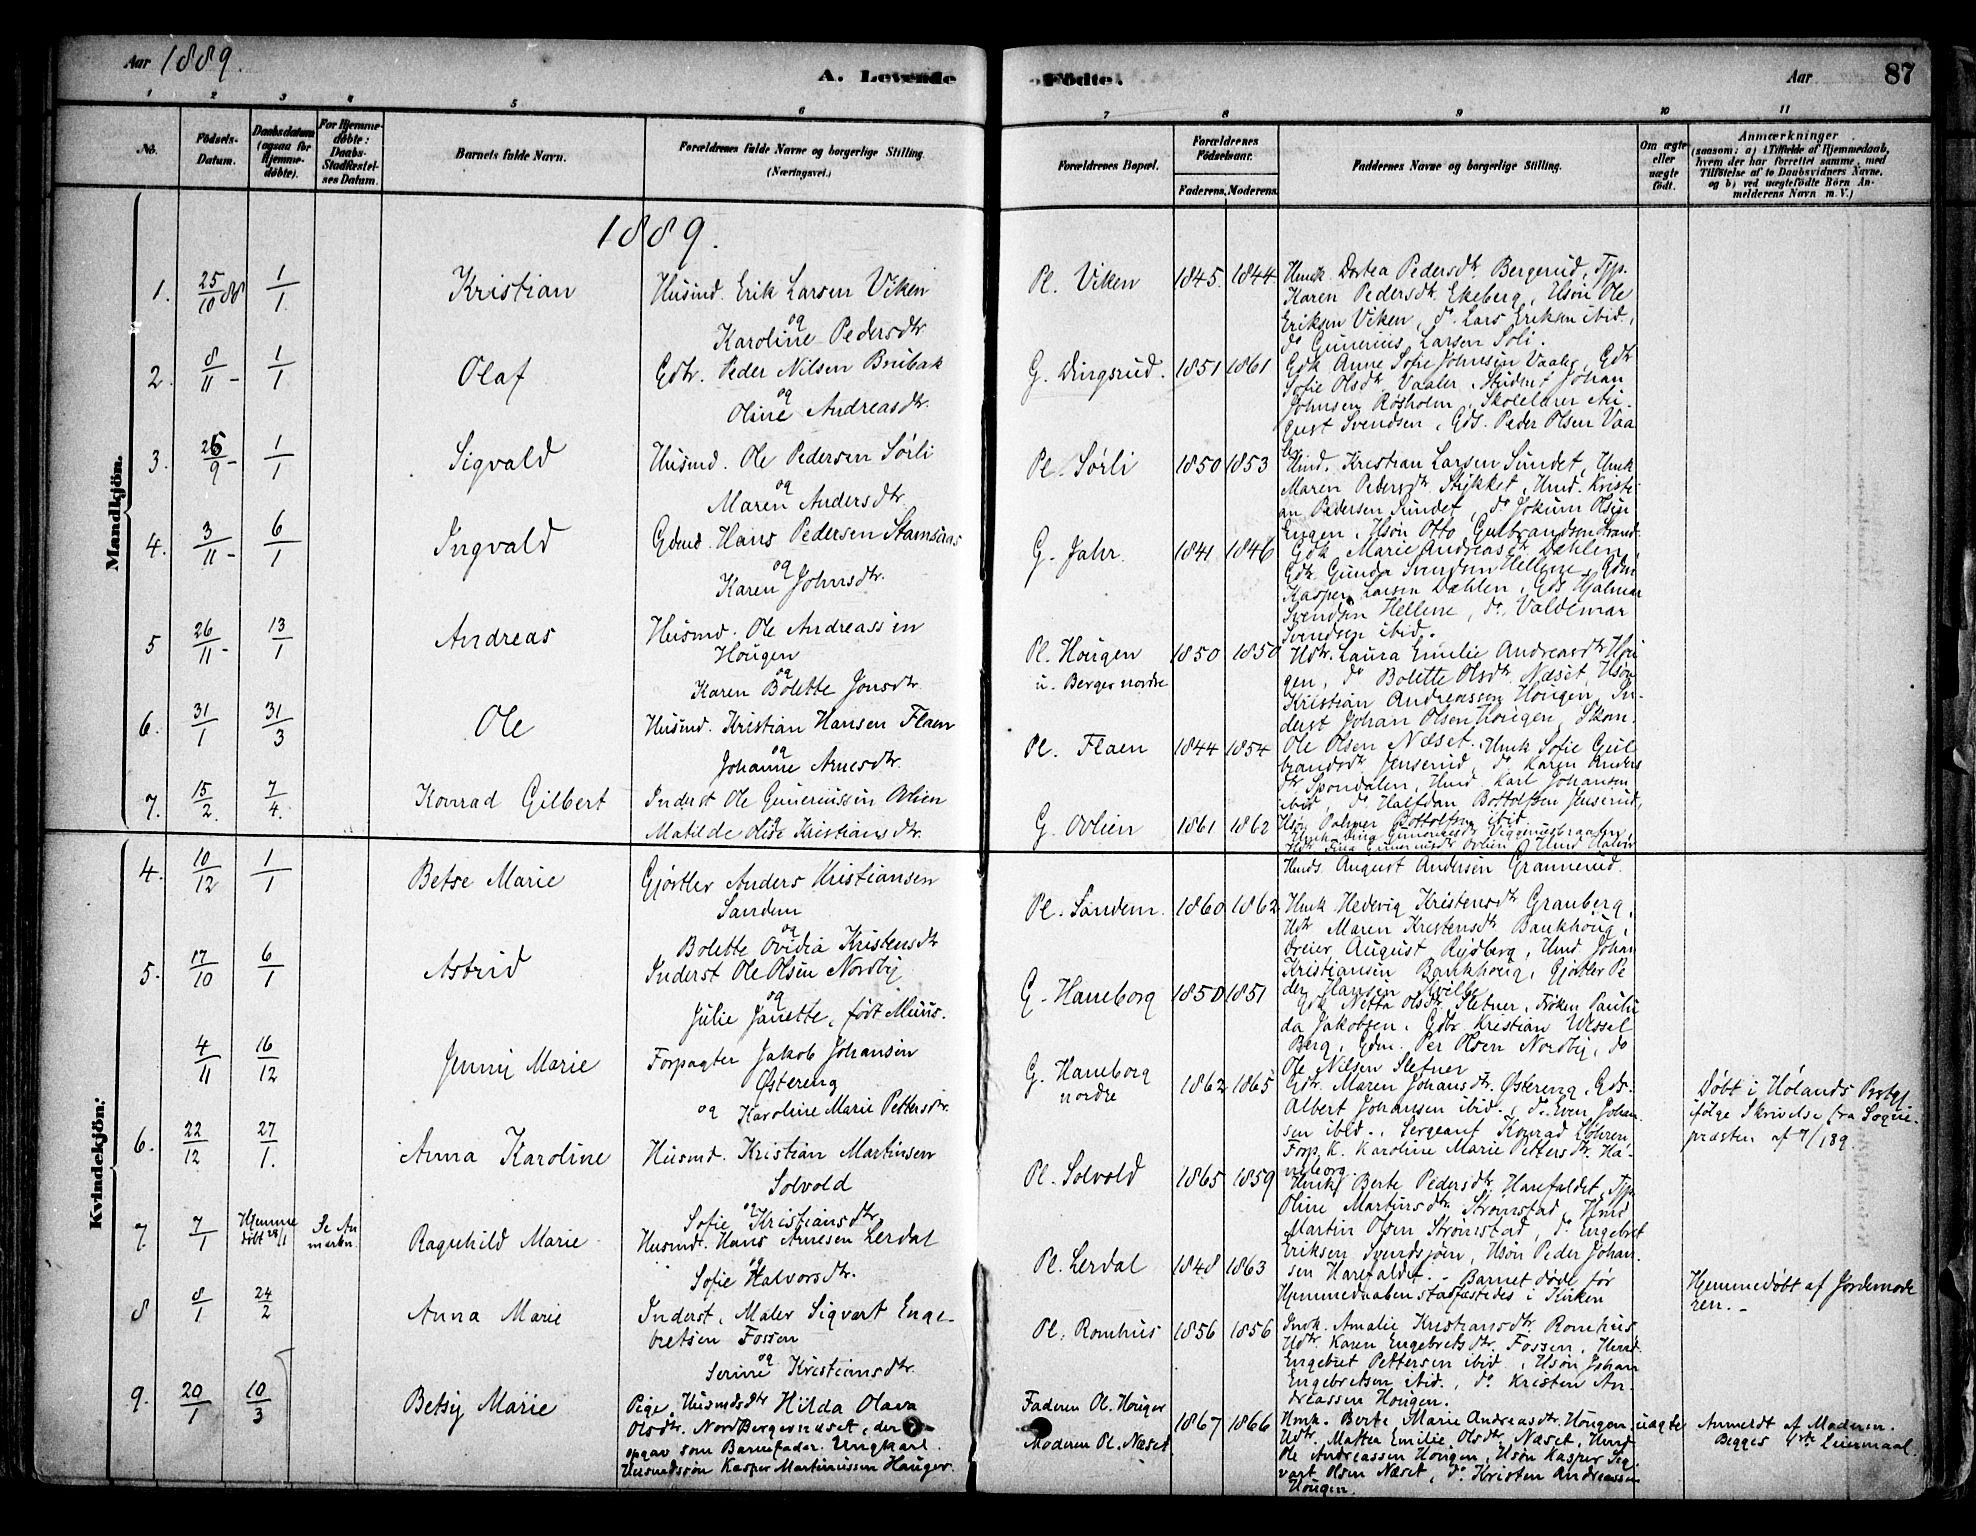 Aar 1889.
A. Levende Fødte.
Aar 87
1 2 3 4 5 6 7 8 9 10 11
No.
Fødsels-Datum.
Daabsdatum (ogsaa for Hjemme-døbte).
For Hjemme-døbte: Daabs-Stadfæstel-ses Datum.
Barnets fulde Navn.
Forældrenes fulde Navne og borgerlige Stilling. (Næringsvei.)
Forældrenes Bopæl.
Forældrenes Fødselsaar.
Faderens. Moderens.
Faddernes Navne og borgerlige Stilling.
Om ægte eller uægte født.
Anmærkninger
(saasom: a) i Tilfælde af Hjemmedaab, hvem der har forrettet samme, med Tilføielse af to Daabsvidners Navne, og b) ved uægtefødte Børn An-melderens Navn m. V.)
1889.
Mandkjön.
1. 25/10 88 1/1 Kristian
Husmd. Erik Larsen Viken
og
Karoline Pedersdtr
Pl. Viken 1845. 1844
Hmk. Dortea Pedersdtr. Bergerud, Tjp.
Karen Pedersdtr. Ekeberg, Hsøn Ole
Eriksen Viken, do. Lars Eriksen ibid.,
do Gunerius Larsen Soli.
2. 8/11 - 1/1 Olaf
Gdbr. Peder Nilsen Brubak
og
Oline Andreasdtr.
G. Dingsrud. 1851 1861
Gdk Anne Sofie Johnsen Vaaler, Gdtr
Sofie Olsdtr Vaaler, Student Johan
Johnsen Røsholm, Skolelærer Au-
gust Svendsen, Gds. Peder Olsen Vaa
ler
3. 1/1 Sigvald
Husmd. Ole Pedersen Sørli
og
Maren Andersdtr.
Pl. Sørli 1850 1853
Hmd. Kristian Larsen Sundet, Hmk
Maren Pedersdtr Stykket, Hmd. Kristi-
an Pedersen Sundet, do Jokum Olsen
Engen, Hsøn Otto Gulbrandsen Strand.
4. 3/11 - 6/1 Ingvald
Gdmd. Hans Pedersen Stamsaas
og
Karen Johnsdtr.
G. Jahr. 1841 1846
Gdk Marie Andreasdtr Dahlen,
Gdk Gunda Svendsen Hellene, Gdm
Kasper Larsen Dahlen, Gds Hjalmar
Svendsen Hellene, do. Valdemar
Svendsen ibid.
5 26/11 - 13/1 Andreas
Husmd. Ole Andreassen
Hougen
og
Karen Bolette Jonsdtr
Pl. Hougen
u. Berger nordre
1850 1850
Hdtr. Laura Emilie Andreasdtr Hou
gen, do Bolette Olsdtr. Næset, Hsøn
Kristian Andreassen Hougen, In-
derst Johan Olsen Hougen, Skom.
Ole Olsen Næset.
6. 31/1 31/3 Ole
Husmd. Kristian Hansen Flaen
og
Johanne Arnesdtr.
Pl. Flaen 1844 1854
Hmk Sofie Gul
brandsdtr Jenserud, do Karen Anders
dtr Spondalen, Hmd Karl Johansen
ibid, do Halfdan Bottolfsen Jenserud,
Hsøn Palmer Bottolfsen ibid.
7. 15/2. 7/4. Konrad Gilbert
Inderst Ole Gunerinssen Ovlien
Matilde Kristiansdtr.
G. Ovlien 1861 1862
Hmds August Andersen Grannerud.
Kvindekjön.
4. 10/12 1/1 Betse Marie
Gjørtler Anders Kristiansen
Sandem
og
Bolette Ovidia Kristensdtr
Pl. Sandem. 1860 1862
Hmk Hedevig Kristensdtr Granberg,
Hdtr Maren Kristensdtr Bankhoug,
Dreier August Rydberg, Hmd Johan
Kristiansen Bankhoug, Gjørtler Pe
der Hansen Kvilbe
5. 17/10 6/1 Astrid
Inderst Ole Olsen Nordby
og
Julie Janette, født Muus.
G. Haneborg 1850 1851
Gdk Netta Olsdtr Sletner, Frøken Pauli
da Jakobsen, Gdbr Kristian Wessel
Berg, Gdm. Per Olsen Nordby, do
Ole Nilsen Sletner
4/11 16/12 Jenny Marie
Forpagter Jakob Johansen
Østereng
og Karoline Marie Pettersdtr.
G. Haneborg
nordre
1862 1865
Gdtr. Maren Johansdtr. Østereng, Gds.
Albert Johansen ibid., do. Even Johan
sen ibid., Sergeant Konrad Løhren,
Forp. k. Karoline Marie Pettersdtr. Ha-
neborg
Døbt i Hølands
følge Skrivelse fra Sogne-
præsten af 7/1 89.
6. 22/12 27/1. Anna Karoline
Husmd. Kristian Martinsen
Solvold
og
Sofie Kristiansdtr
Pl. Solvold 1865 1859
Hmk Berte Pedersdtr. Harefaldet, Tjp.
Oline Martinsdtr. Strømstad, Hmd
Martin Olsen Strømstad, do Engebret
Eriksen Svendsjøen, Hsøn Peder Johan-
sen Harefaldet. -
7. 7/1 Hjemme
døbt 28/1 Se An
mærkn. Ragnhild Marie
Husmd. Hans Arnesen Lerdal
og
Sofie Halvorsdtr.
Pl. Lerdal 1848 1863
Barnet døde før
Hjemmedaaben stadfæstedes i Kirken
Hjemmedøbt af Jordemode
ren. -
8 8/1 24/2 Anna Marie
Inderst, Maler Sigvart Enge-
bretsen Fossen
og
Serine Kristiansdtr.
Pl. Romhus 1856 1856
Ink. Amalie Kristiansdtr. Romhus
Hdtr Karen Engebretsdtr. Fossen, Hmd.
Engebret Pettersen ibid., Hsøn Johan
Engebretsen ibid., do Kristen An-
dreassen Hougen.
9. 20/1 10/3 Betsy Marie
Pige, Husmdsdtr Hilda Olava
Olsdtr. Nord Bergernæset, der
opgav som Barnefader. Ungkarl.
Husmdssøn Kasper Martiniussen Hauger.
Faderen Pl. Houger
Moderen Pl. Næset
1867 1866
Hmk. Berte Marie Andreasdtr. Hougen
Hdtr. Mattea Emilie Olsdtr. Næset, Hmd
Ole Andreassen Hougen, Hsøn Kasper Sig
vart Olsen Næset, do. Kristen Andreassen
Hougen.
uægte
Anmeldt af Moderen.
Begges 1ste Leiermaal.